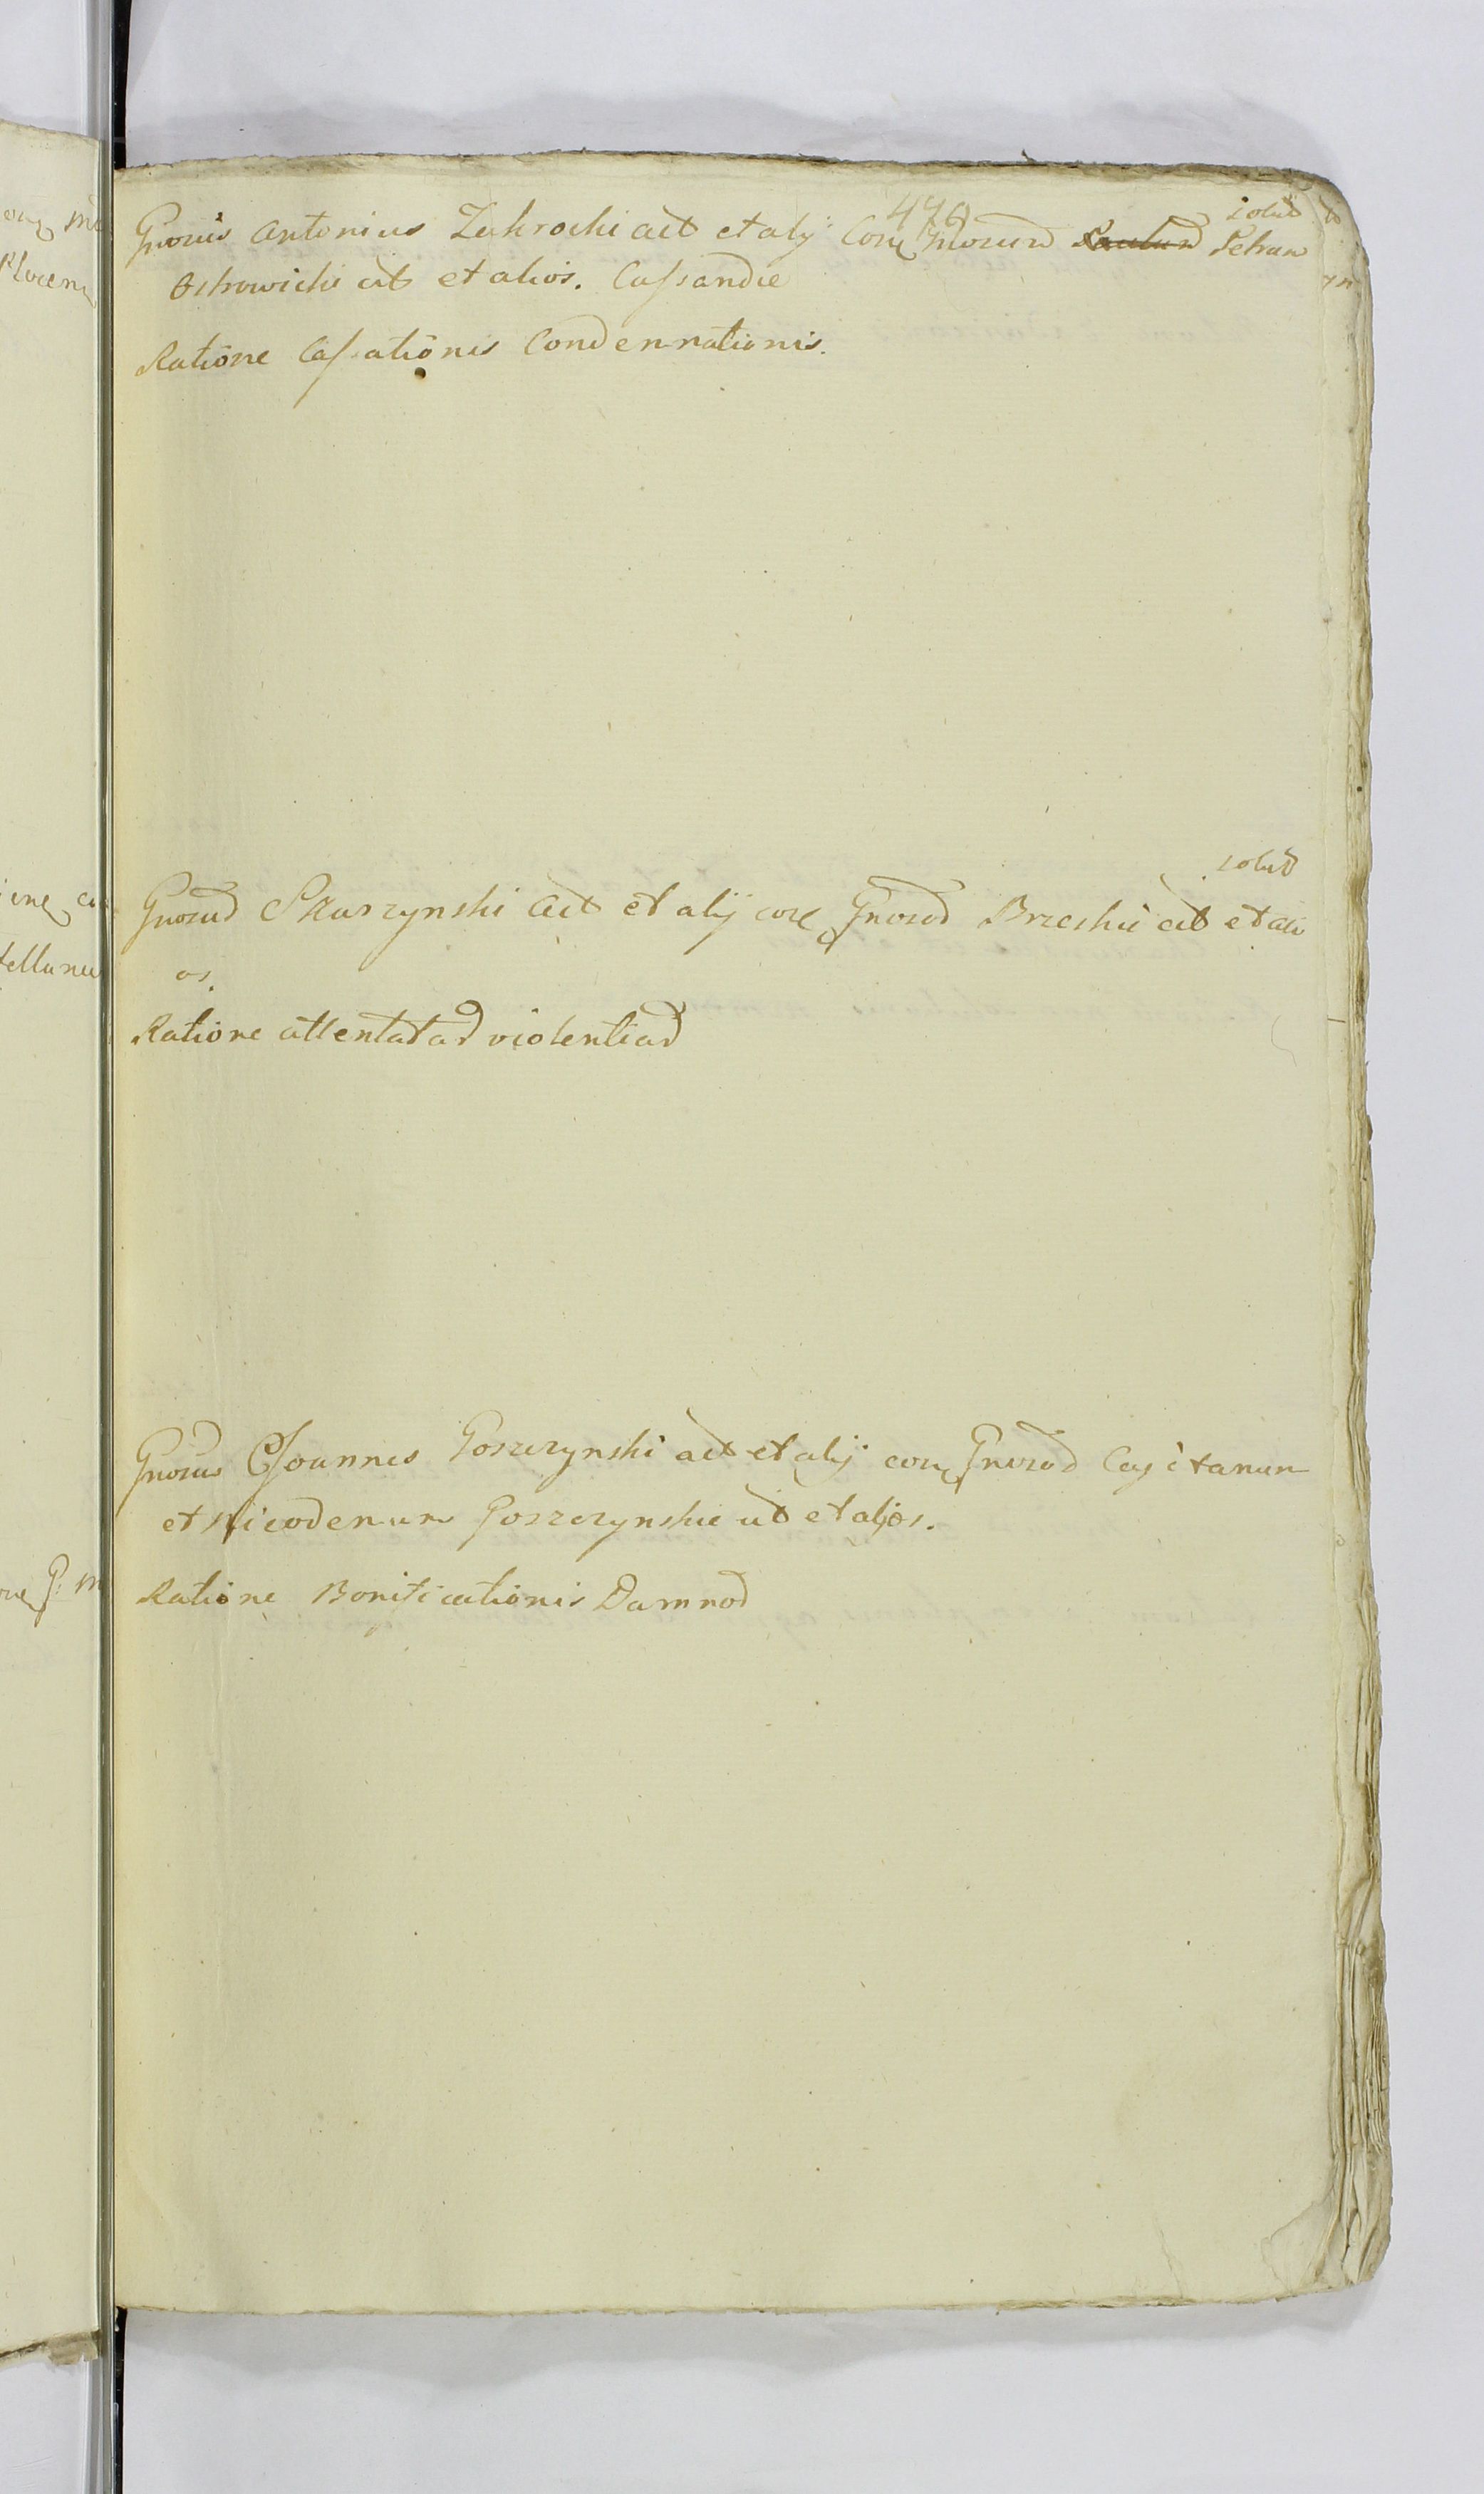 476
solut
Gnosus Antonius Zakrocki act et alij Cone Gnosum Paulum Petrum
Ostrowicki cit et alios. Cassandae
Ratione Cassationis Condemnationis.
solut
Gnosus Skarzynski act et alij cone Gnosod Brzeskie cit et ali
os.
Ratione attentatae violentiae
Gnosus Joannes Goszczynski act et alij cone Gnosod Cajetanum
et Nicodemum Goszczynskie cit et alios.
Ratione Bonificationis Damnod